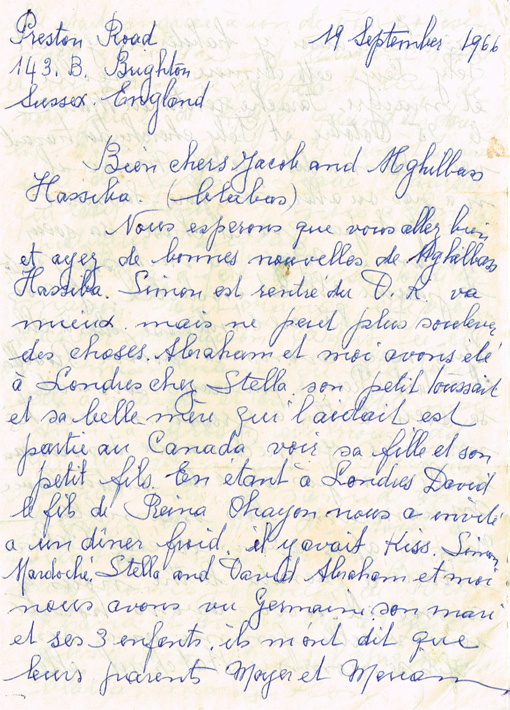 Preston Road 19 September 1966
143. B. Brighton
Sussex. England
Bien chers Jacob and Mghilbas
Hassiba. (blabas)
Nous esperons que vous allez bien
et ayez de bonnes nouvelles de Mghilbas
Hassiba. Simon est rentre du D. R. va
mieux. mais ne peut plus soulever
des choses. Abraham et moi avons été
à Londres chez Stella son petit toussait
et sa belle mère qui l'aidait est
partie au Canada voir sa fille et son
petit fils. En étant à Londres David
le fils de Reina Ohayon nous a invité
a un dîner froid. il y avait Kiss. Simon,
Mardoché, Stella and David Abraham et moi
nous avons vu Germaine son mari
et ses 3 enfants. ils m'ont dit que
leurs parents Moyer et Meriam